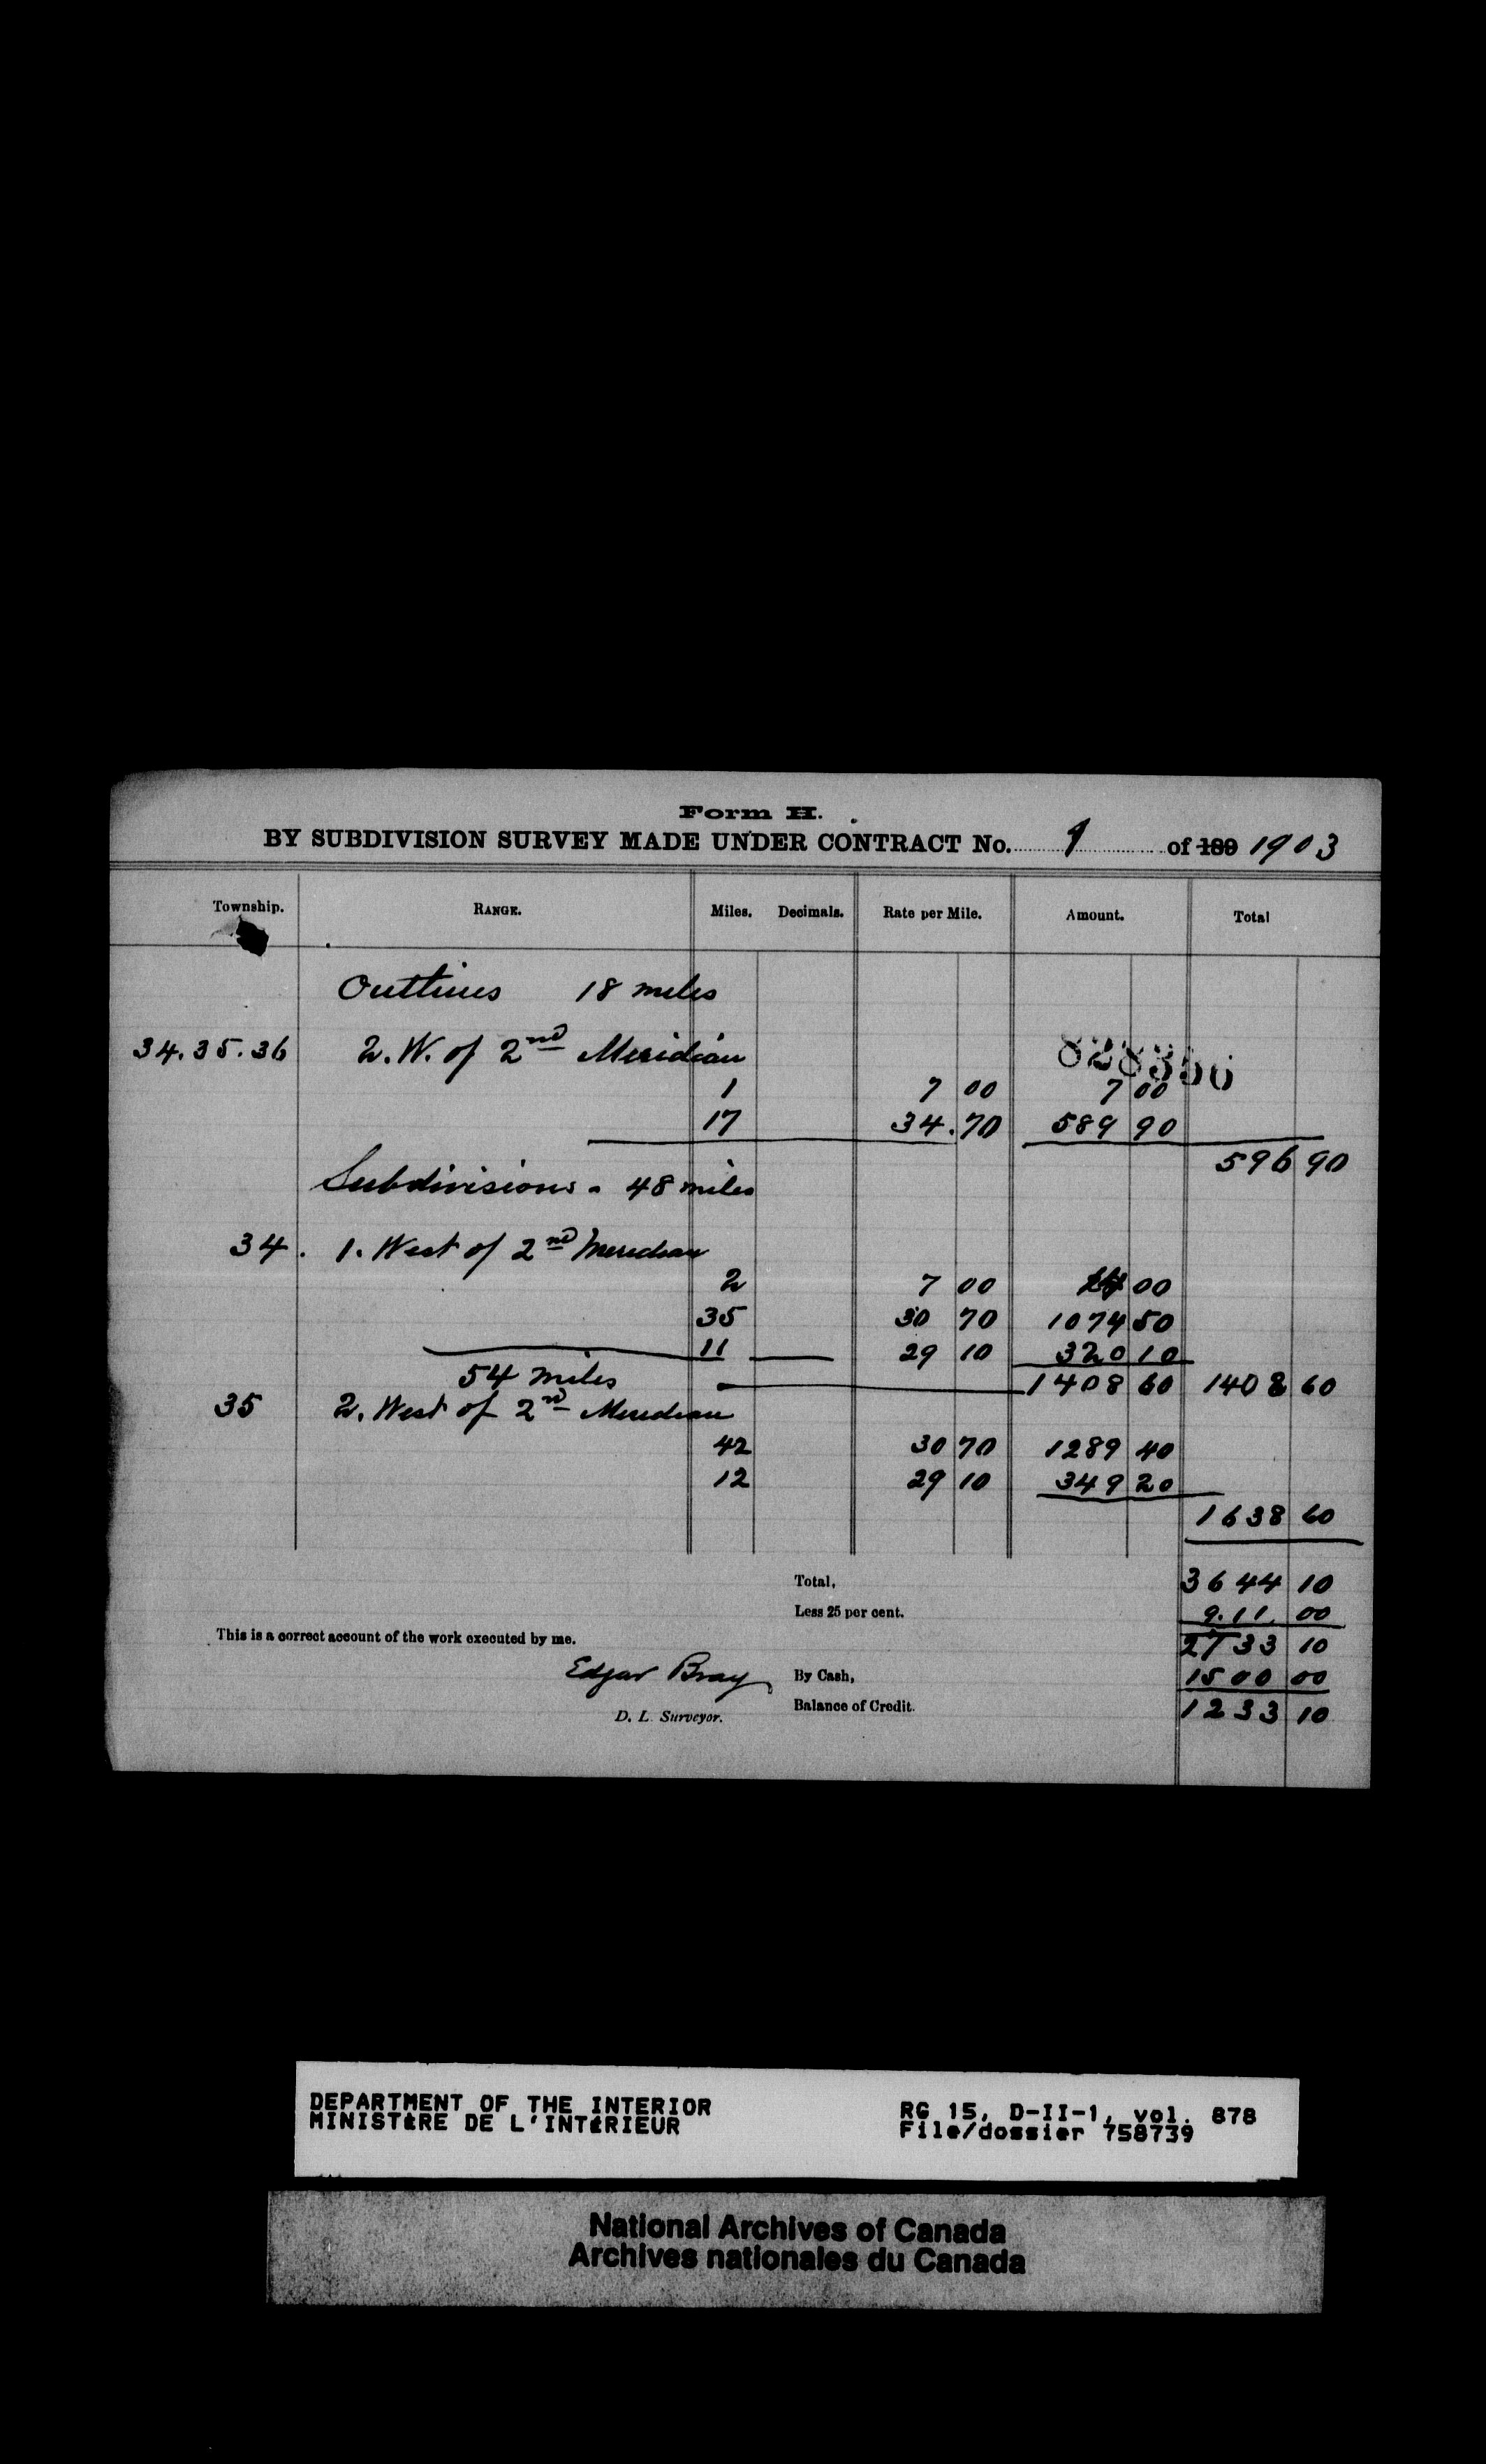 Form H.
BY SUBDIVISION SURVEY MADE UNDER CONTRACT No. 9 of 189 1903
Township. RANGE. Miles. Decimals. Rate per Mile. Amount. Total
Outlines 18 miles
34.35.36 2. W. of 2nd Meridian
828356
1 7 00 7 00
17 34.70 589 90
596 90
Subdivisions - 48 miles
34. 1. West of 2nd Meridian
2 7 00 14 00
35 30 70 1074 50
11 29 10 320 10
54 miles 1408 60 1408 60
35 2. West of 2nd Meridian
42 30 70 1289 40
12 29 10 349 20
1638 60
Total, 3644 10
Less 25 per cent. 9.11 00
This is a correct account of the work executed by me. 2733 10
Edgar Bray By Cash, 1500 00
D. L. Surveyor. Balance of Credit. 1233 10
DEPARTMENT OF THE INTERIOR RG 15, D-II-1, vol. 878
MINISTÈRE DE L'INTÉRIEUR File/dossier 758739
National Archives of Canada
Archives nationales du Canada